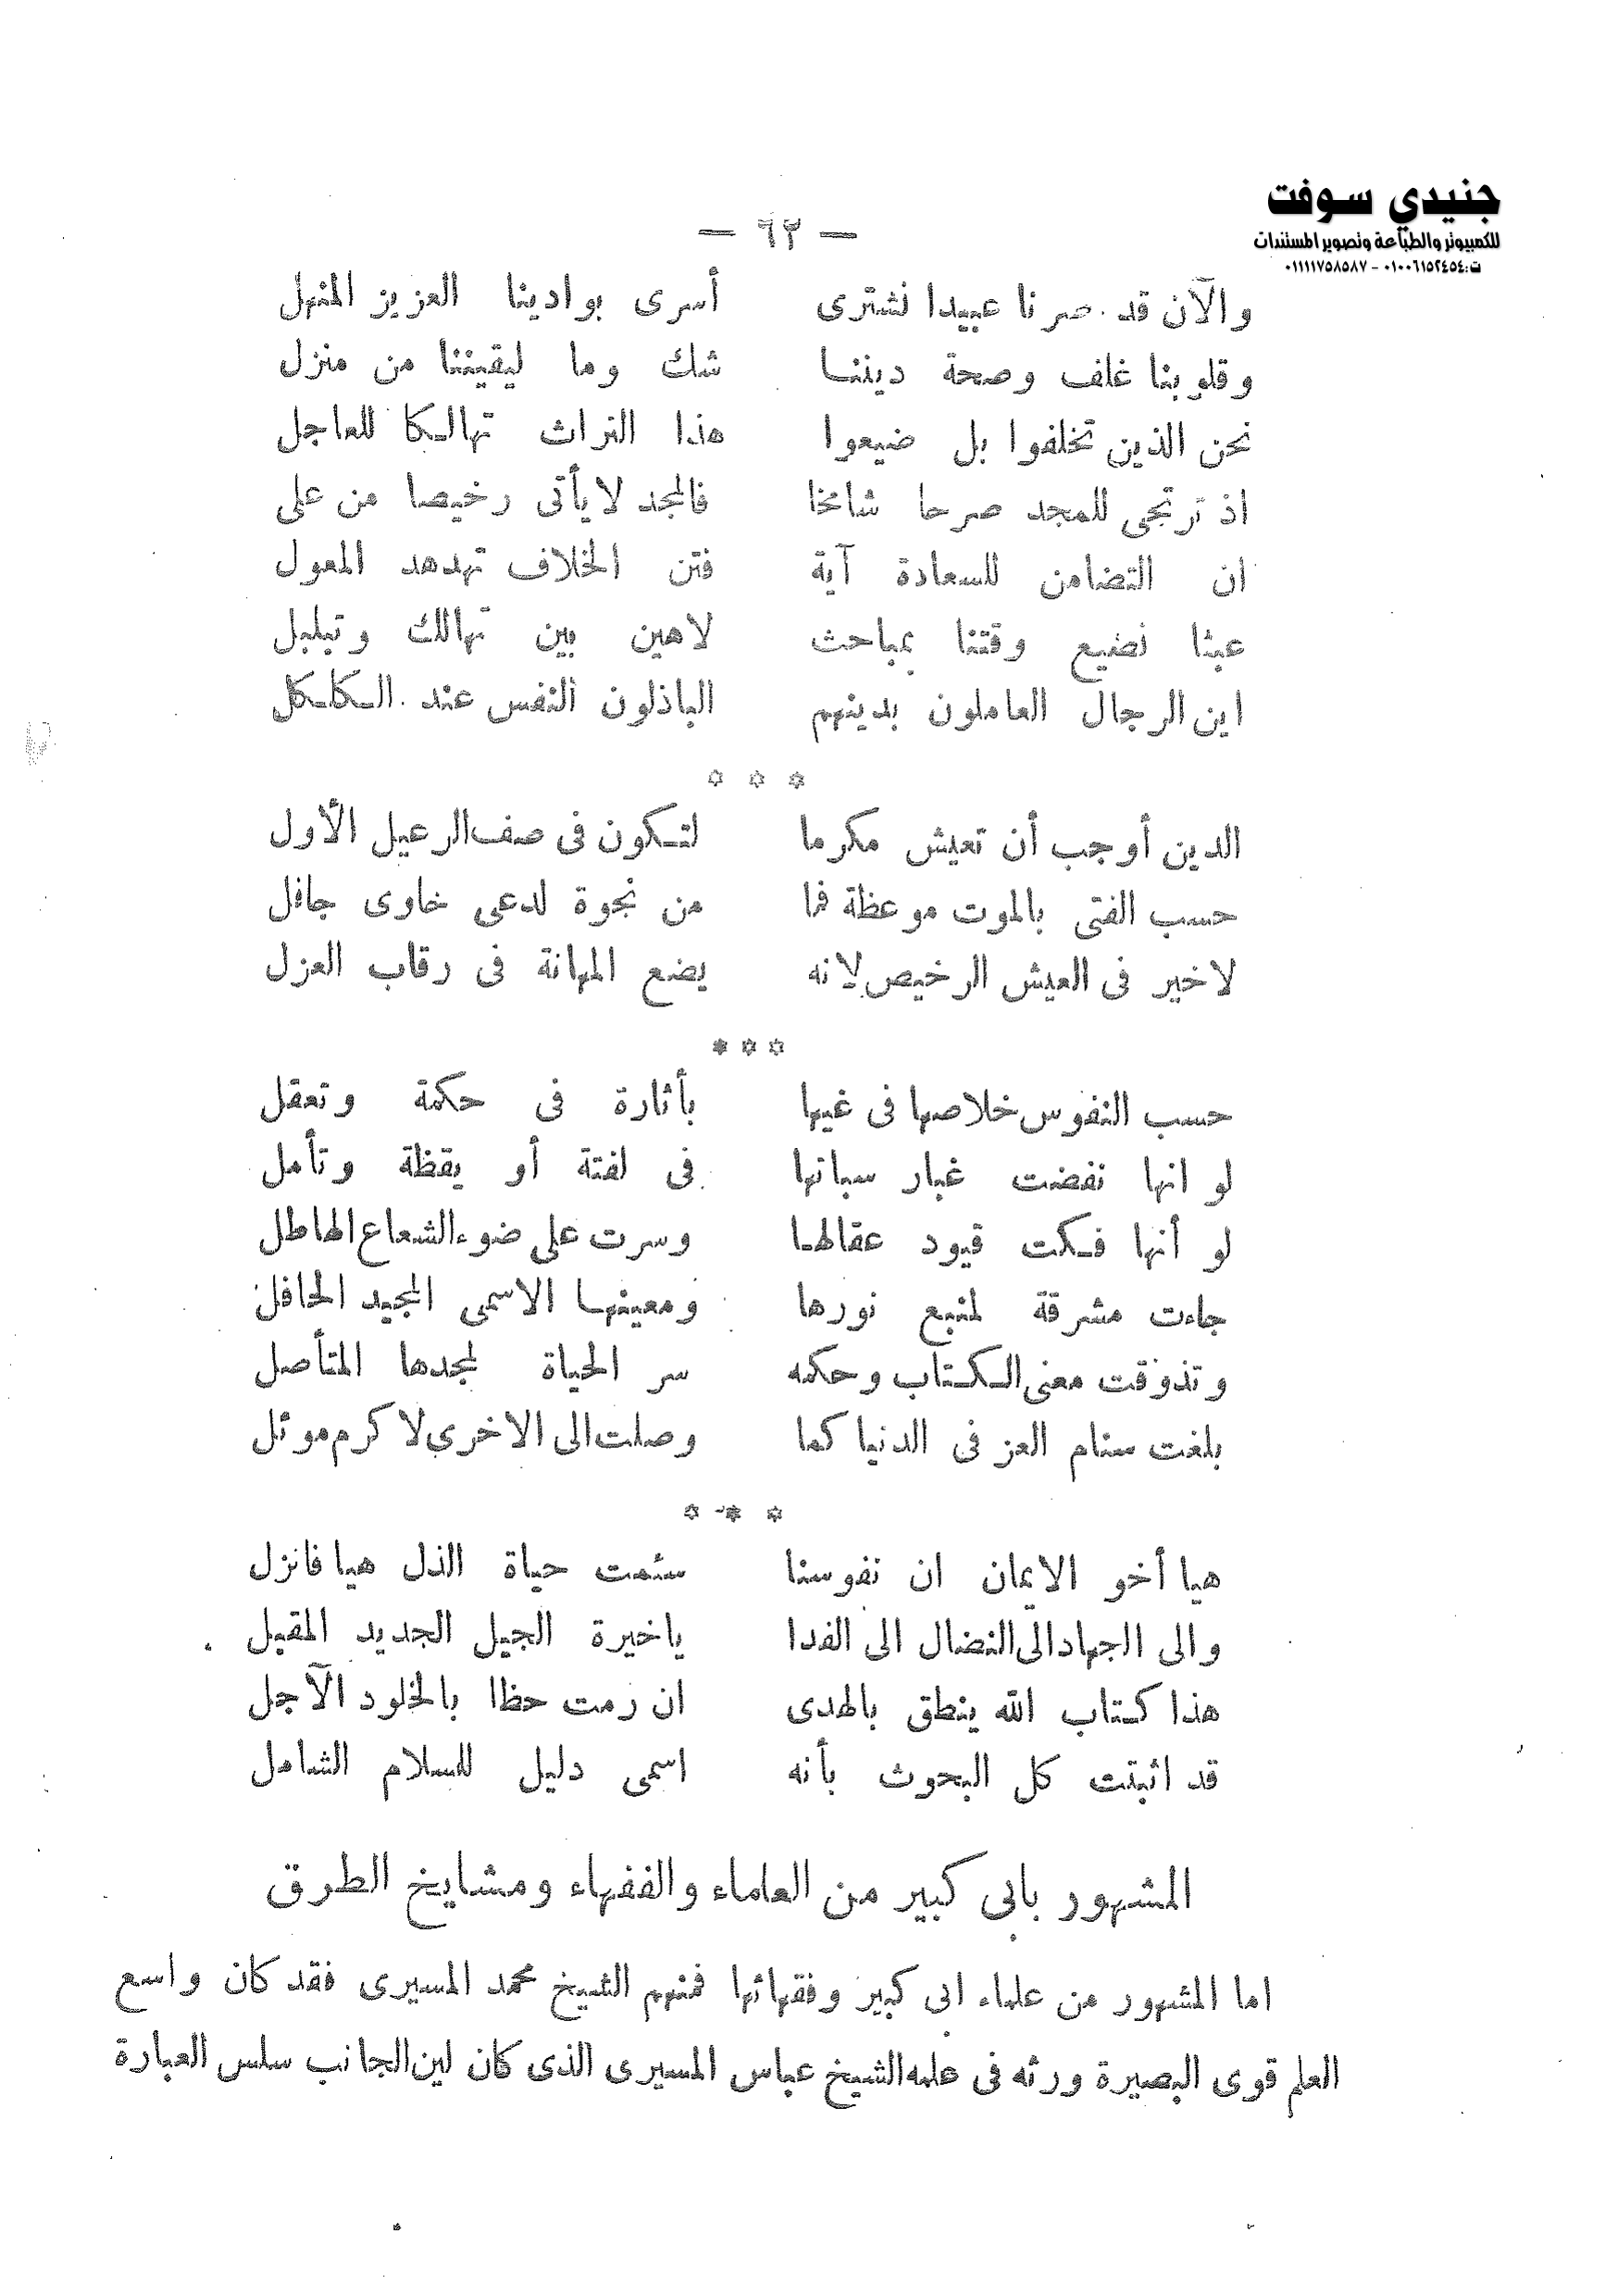 جنيدي سوفت
للكمبيوتر والطباعة وتصوير المستندات
ت: ٠١٠٠٦١٥٢٤٥٤ - ٠١١١١٧٥٨٥٨٧
— ٦٢ —
والآن قد صرنا عبيدا نشترى أسرى بوادينا العزيز المنهل
وقلوبنا غلف وصحة ديننا شك وما ليقيننا من منزل
نحن الذين تخلفوا بل ضيعوا هذا التراث تهالكا للعاجل
اذ ترتجى للمجد صرحا شامخا فالمجد لا يأتى رخيصا من على
ان التضامن للسعادة آية فتن الخلاف تهدهد المعول
عبثا نضيع وقتنا بمباحث لاهين بين تهالك وتبلبل
اين الرجال العاملون بدينهم الباذلون النفس عند الكلكل
* * *
الدين أوجب أن تعيش مكرما لتكون فى صف الرعيل الأول
حسب الفتى بالموت موعظة فما من نجوة لدعى خاوى جافل
لا خير فى العيش الرخيص لانه يضع المهانة فى رقاب العزل
* * *
حسب النفوس خلاصها فى غيها بأثارة فى حكمة وتعقل
لو انها نفضت غبار سباتها فى لفتة أو يقظة وتأمل
لو أنها فكت قيود عقالها وسرت على ضوء الشعاع الهاطل
جاءت مشرقة لمنبع نورها ومعينها الاسمى المجيد الحافل
وتذوقت معنى الكتاب وحكمه سر الحياة لمجدها المتأصل
بلغت سنام العز فى الدنيا كما وصلت الى الاخرى لاكرم موئل
* * *
هيا أخو الايمان ان نفوسنا سئمت حياة الذل هيا فانزل
والى الجهاد الى النضال الى الفدا ياخيرة الجيل الجديد المقبل
هذا كتاب الله ينطق بالهدى ان رمت حظا بالخلود الآجل
قد اثبتت كل البحوث بأنه اسمى دليل للسلام الشامل
المشهور بابى كبير من العلماء والفقهاء ومشايخ الطرق
اما المشهور من علماء ابى كبير وفقهائها فمنهم الشيخ محمد المسيرى فقد كان واسع
العلم قوى البصيرة ورثه فى علمه الشيخ عباس المسيرى الذى كان لين الجانب سلس العبارة